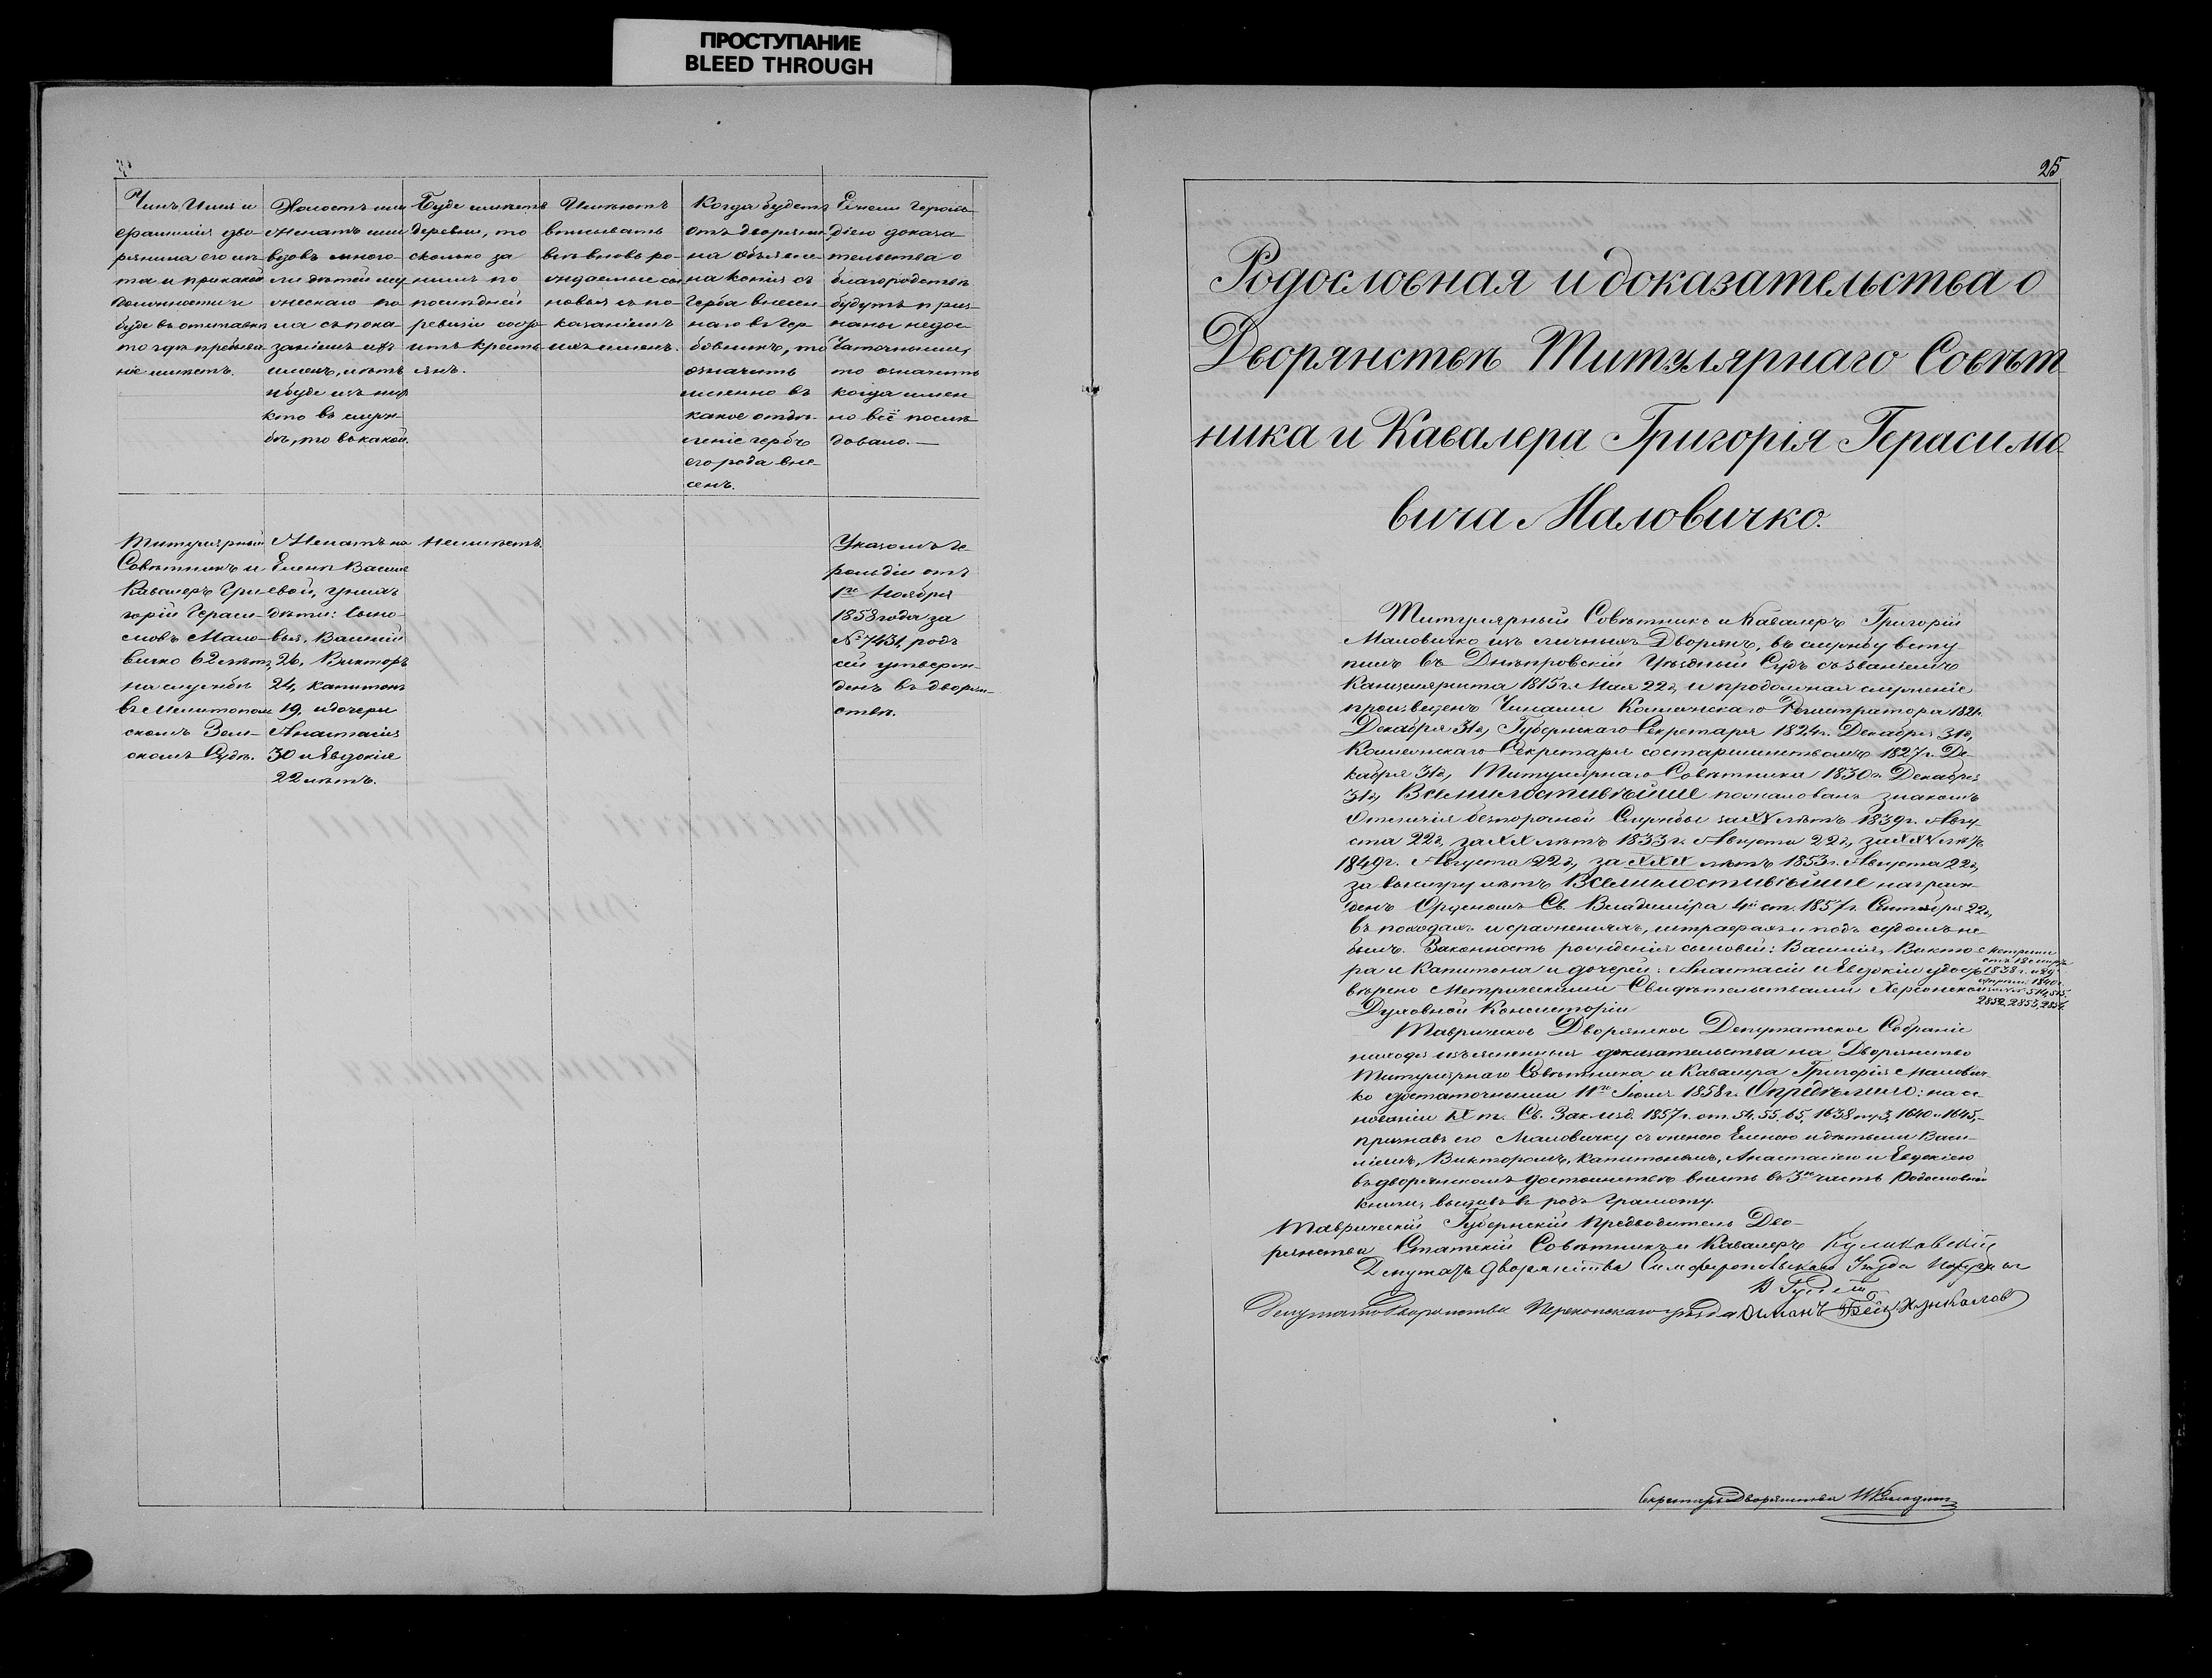 ПРОСТУПАНИЕ
BLEED THROUGH
Чинъ, Имя и
фамилія дво-
рянина его лѣ-
та и при какой
должности и
буде въ отставкѣ
то гдѣ пребыва-
ніе имѣетъ.
Холостъ или
женатъ или
вдовъ много-
ли дѣтей му-
жескаго по-
ла съ пока-
заніемъ ихъ
именъ, лѣтъ
и буде изъ нихъ
кто въ служ-
бѣ, то въ какой.
Буде имѣетъ
деревни, то
сколько за
нимъ по
послѣдней
ревизіи состо-
итъ крестъ-
янъ.
Имѣютъ
вписывать
вѣь вновь ро-
ждаемые сы-
новья съ по-
казаніемъ
ихъ именъ.
Когда будетъ
отъ дворяни-
на объявле-
на копія съ
Герба внесен-
наго въ Гер-
бовникъ, то
означить
именно въ
какое отдѣ-
леніе гербъ
его рода вне-
сенъ.
Ежели Героль-
діею доказа-
тельства о
благородствѣ
будутъ приз-
наны недос-
таточными,
то означить
когда имен-
но всё послѣ-
довало.—
Титулярный
Совѣтникъ и
Кавалеръ Гри-
горій Гераси-
мовъ Мало-
вичко 62 лѣтъ,
на службѣ
въ Мелитополь-
скомъ Зем-
скомъ Судѣ.
Женатъ на
Еленѣ Василь-
евой, у нихъ
дѣти: Сыно-
вья, Василій
26, Викторъ
24, Капитонъ
19, и дочери
Анастасія
30 и Евдокія
22 лѣтъ.
Неимѣетъ.
Указомъ Ге-
рольдіи отъ
1го Ноября
1858 года за
№ 7431, родъ
сей утверж-
денъ въ дворян-
ствѣ.
25
Родословная и доказательства о
Дворянствѣ Титулярнаго Совѣт
ника и Кавалера Григорія Герасимо-
вича Маловичко.
Титулярный Совѣтникъ и Кавалеръ Григорій
Маловичко изъ личныхъ Дворянъ, въ службу всту-
пилъ въ Днѣпровскій Уѣздный Судъ съ званіемъ
Канцеляриста 1815 г. Мая 22 д, и продолжая служеніе
произведенъ Чинами Коллежскаго Регистратора 1821
Декабря 31 д, Губернскаго Секретаря 1824 г. Декабря 31 д,
Коллежскаго Секретаря со старшинствомъ 1827 г. Де-
кабря 31 д, Титулярнаго Совѣтника 1830 г. Декабря
31 д, Всемилостивѣйше пожалованъ знакомъ
Отличія безпорочной Службы за XV лѣтъ 1839 г. Авгу-
ста 22 д, за XX лѣтъ 1833 г. Августа 22 д, за XXV лѣтъ
1849 г. Августа 22 д, за XXX лѣтъ 1853 г. Августа 22 д,
за выслугу лѣтъ Всемилостивѣйше награж-
денъ Орденомъ Св. Владиміра 4й ст. 1857 г. Сентября 22 д,
въ походахъ и сраженіяхъ, штрафахъ и подъ судомъ не
былъ. Законность рожденія сыновей: Василія, Викто-
ра и Капитона и дочерей: Анастасіи и Евдокіи удосто-
вѣрено Метрическими Свидѣтельствами Херсонской
Духовной Консисторіи
1838 г. и 29
1840 г.
514, 515,
2852, 2853, 2854.
Таврическое Дворянское Депутатское Собраніе
находя изъясненныя доказательства на Дворянство
Титулярнаго Совѣтника и Кавалера Григорія Малович-
ко достаточными 11го Іюля 1858 г. Опредѣлило: на о-
нованіи IX т. Св. Зак. изд. 1857 г. ст. 54, 55, 65, 1638 пу. 3, 1640 и 1645,-
признавъ его Маловичку съ женою Еленою и дѣтьми Васи-
ліемъ, Викторомъ, Капитономъ, Анастасіею и Евдокіею
въ дворянскомъ достоинствѣ внесть въ 3ю часть Родословной
книги, выдавъ въ родъ Грамоту.
Таврическій Губернскій Предводитель Дво-
рянства Статскій Совѣтникъ и Кавалеръ Куликовскій
Депутатъ Дворянства Симферопольскаго Уѣзда
Депутатъ Дворянства Перекопскаго уѣзда Османъ Бей
Секретарь Дворянства